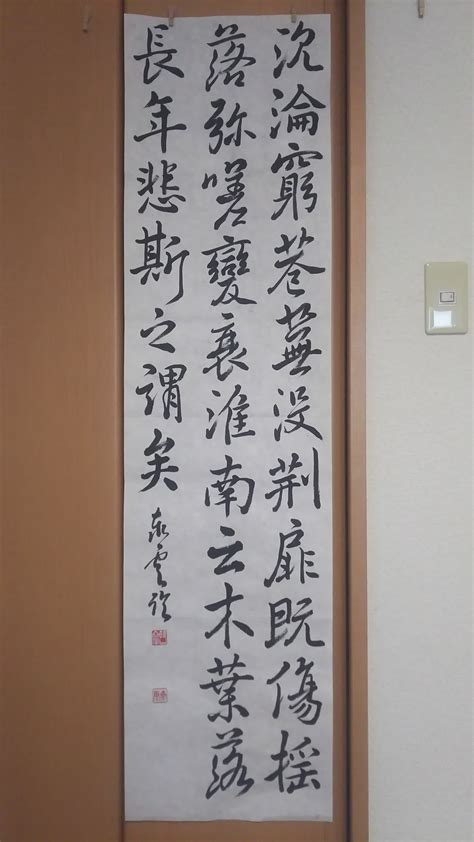 沉淪窮巷蕪没荊扉既傷揺
落弥嗟變衰淮南云木葉落
長年悲斯之謂矣